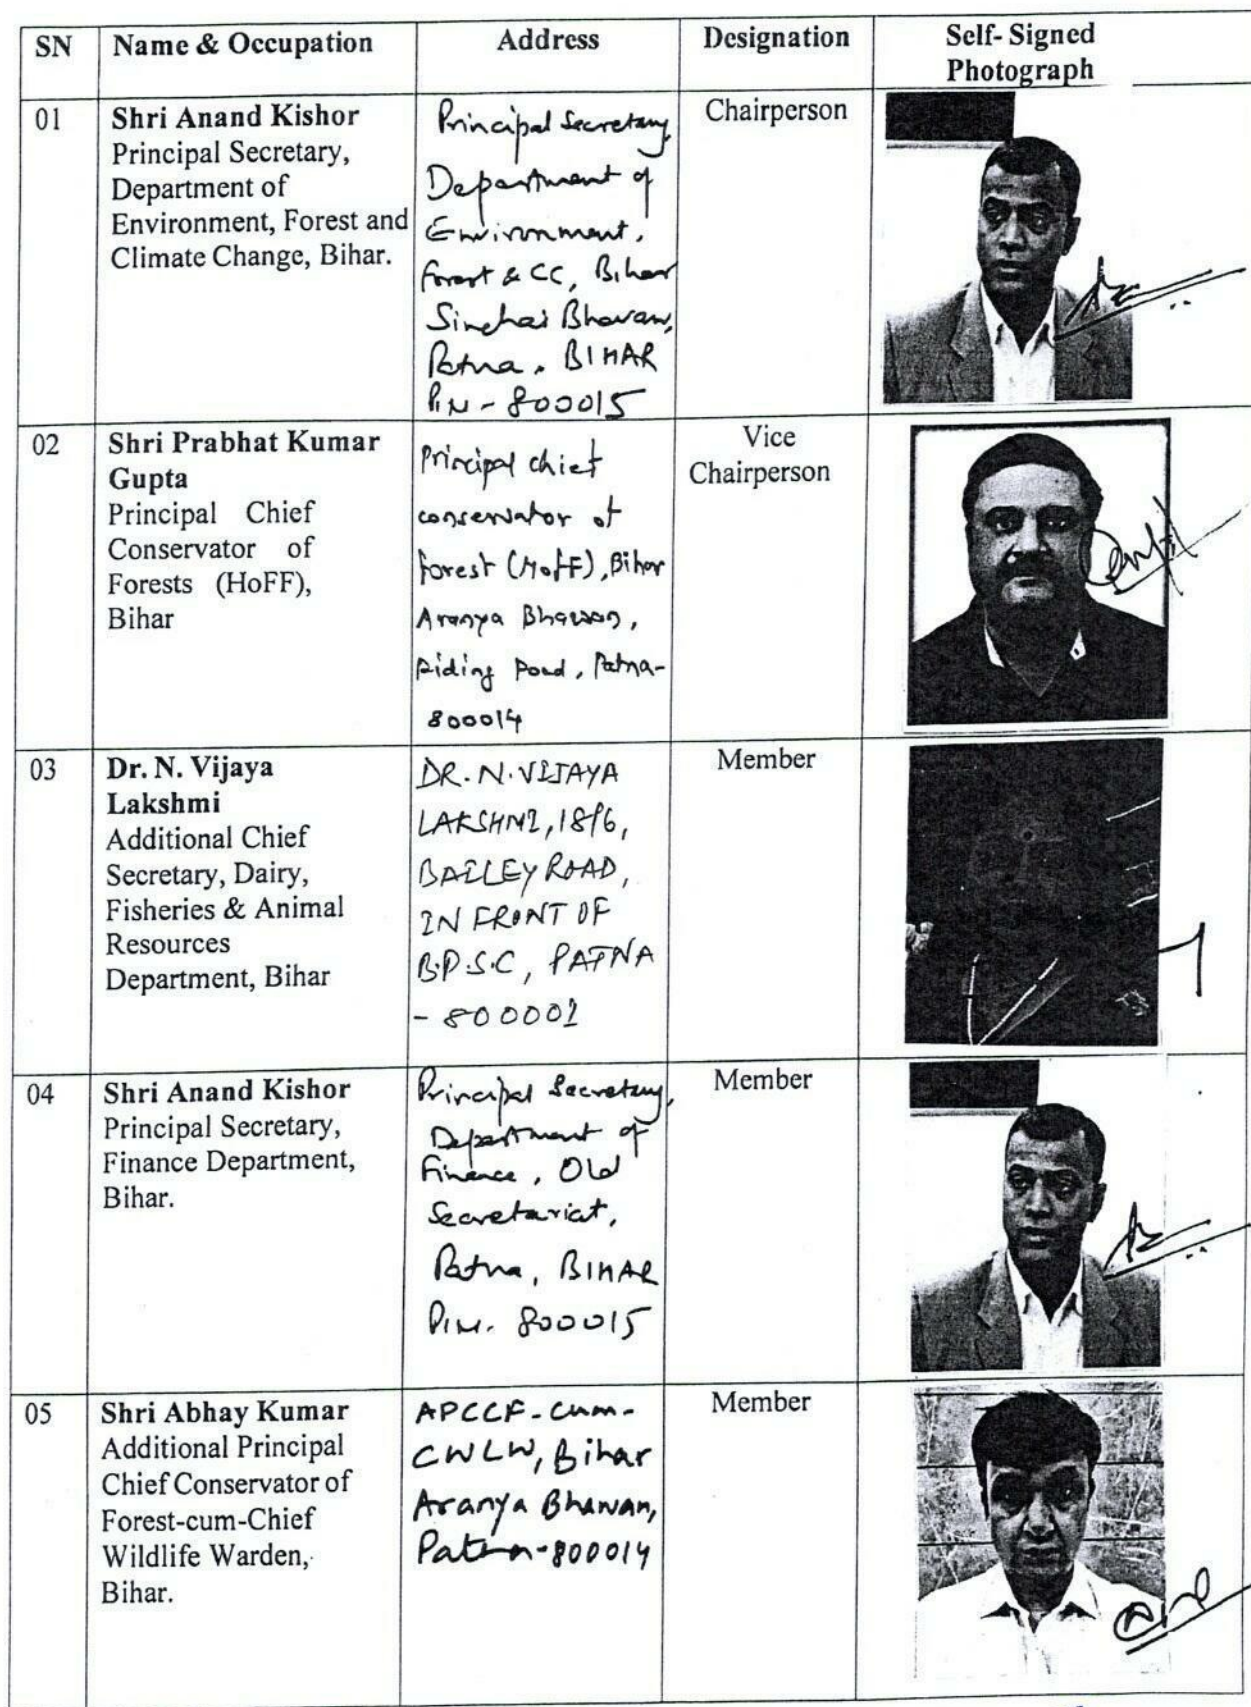 SN Name & Occupation Address Designation Self- Signed
Photograph
01
Shri Anand Kishor
Principal Secretary,
Department of
Environment, Forest and
Climate Change, Bihar.
Principal Secretary,
Department of
Environment,
Forest & CC, Bihar
Sinchai Bhavan,
Patna. BIHAR
PIN - 800015
Chairperson
02
Shri Prabhat Kumar
Gupta
Principal Chief
Conservator of
Forests (HoFF),
Bihar
Principal chief
conservator of
forest (HoFF), Bihar
Aranya Bhawan,
Riding Road, Patna-
800014
Vice
Chairperson
03
Dr. N. Vijaya
Lakshmi
Additional Chief
Secretary, Dairy,
Fisheries & Animal
Resources
Department, Bihar
DR. N. VIJAYA
LAKSHMI, 18/6,
BAILEY ROAD,
IN FRONT OF
B.P.S.C, PATNA
- 800001
Member
04
Shri Anand Kishor
Principal Secretary,
Finance Department,
Bihar.
Principal Secretary,
Department of
Finance, Old
Secretariat,
Patna, BIHAR
PIN. 800015
Member
05
Shri Abhay Kumar
Additional Principal
Chief Conservator of
Forest-cum-Chief
Wildlife Warden,
Bihar.
APCCF-cum-
CWLW, Bihar
Aranya Bhawan,
Patna-800014
Member